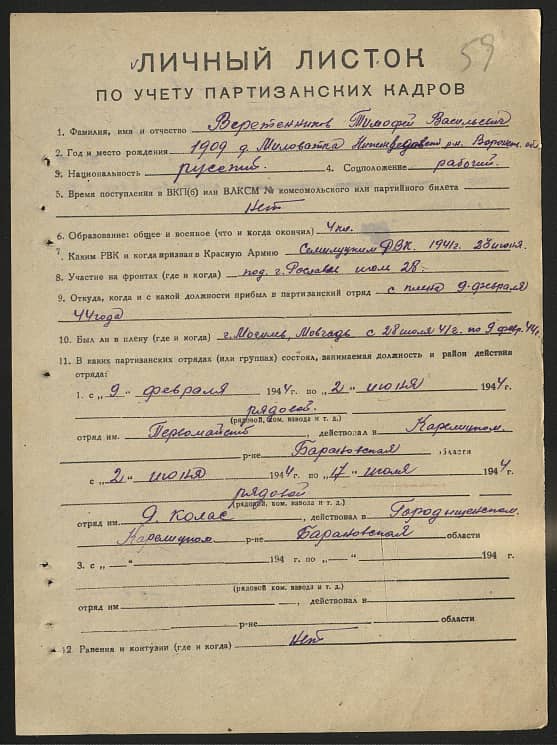 59
ЛИЧНЫЙ ЛИСТОК
ПО УЧЕТУ ПАРТИЗАНСКИХ КАДРОВ
1. Фамилия, имя и отчество Веретенников Тимофей Васильевич
2. Год и место рождения 1909 д. Миловатка Воронеж. обл.
3. Национальность русский. 4. Соцположение рабочий.
5. Время поступления в ВКП(б) или ВЛКСМ № комсомольского или партийного билета
Нет
6. Образование: общее и военное (что и когда окончил) 4 кл.
7. Каким РВК и когда призван в Красную Армию Семилуцким РВК. 1941г. 28 июня.
8. Участие на фронтах (где и когда) под. г. Рославль июль 28.
9. Откуда, когда и с какой должности прибыл в партизанский отряд с плена 9. февраля
44 года
10. Был ли в плену (где и когда) г. Могилев, с 28 июля 41г. по 9 февр. 44г.
11. В каких партизанских отрядах (или группах) состоял, занимаемая должность и район действия
отряда:
1. с „ 9 " февраля 1944 г. по „ 2 " июня 1944 г.
рядовой.
(рядовой, ком. взвода и т. д.)
отряд им. Первомайский действовал в Карелицком.
р-не Барановская области
с „ 2 " июня 1944 г. по „ 17 " июля 1944 г.
рядовой
(рядовой, ком. взвода и т. д.)
отряд им. Я. Колас, действовал в Городищенском.
Карелицком р-не Барановской области
3. с „ " 194 г. по „ " 194 г.
(рядовой ком. взвода и т. д.)
отряд им , действовал в
р-не области
12. Ранения и контузии (где и когда) Нет